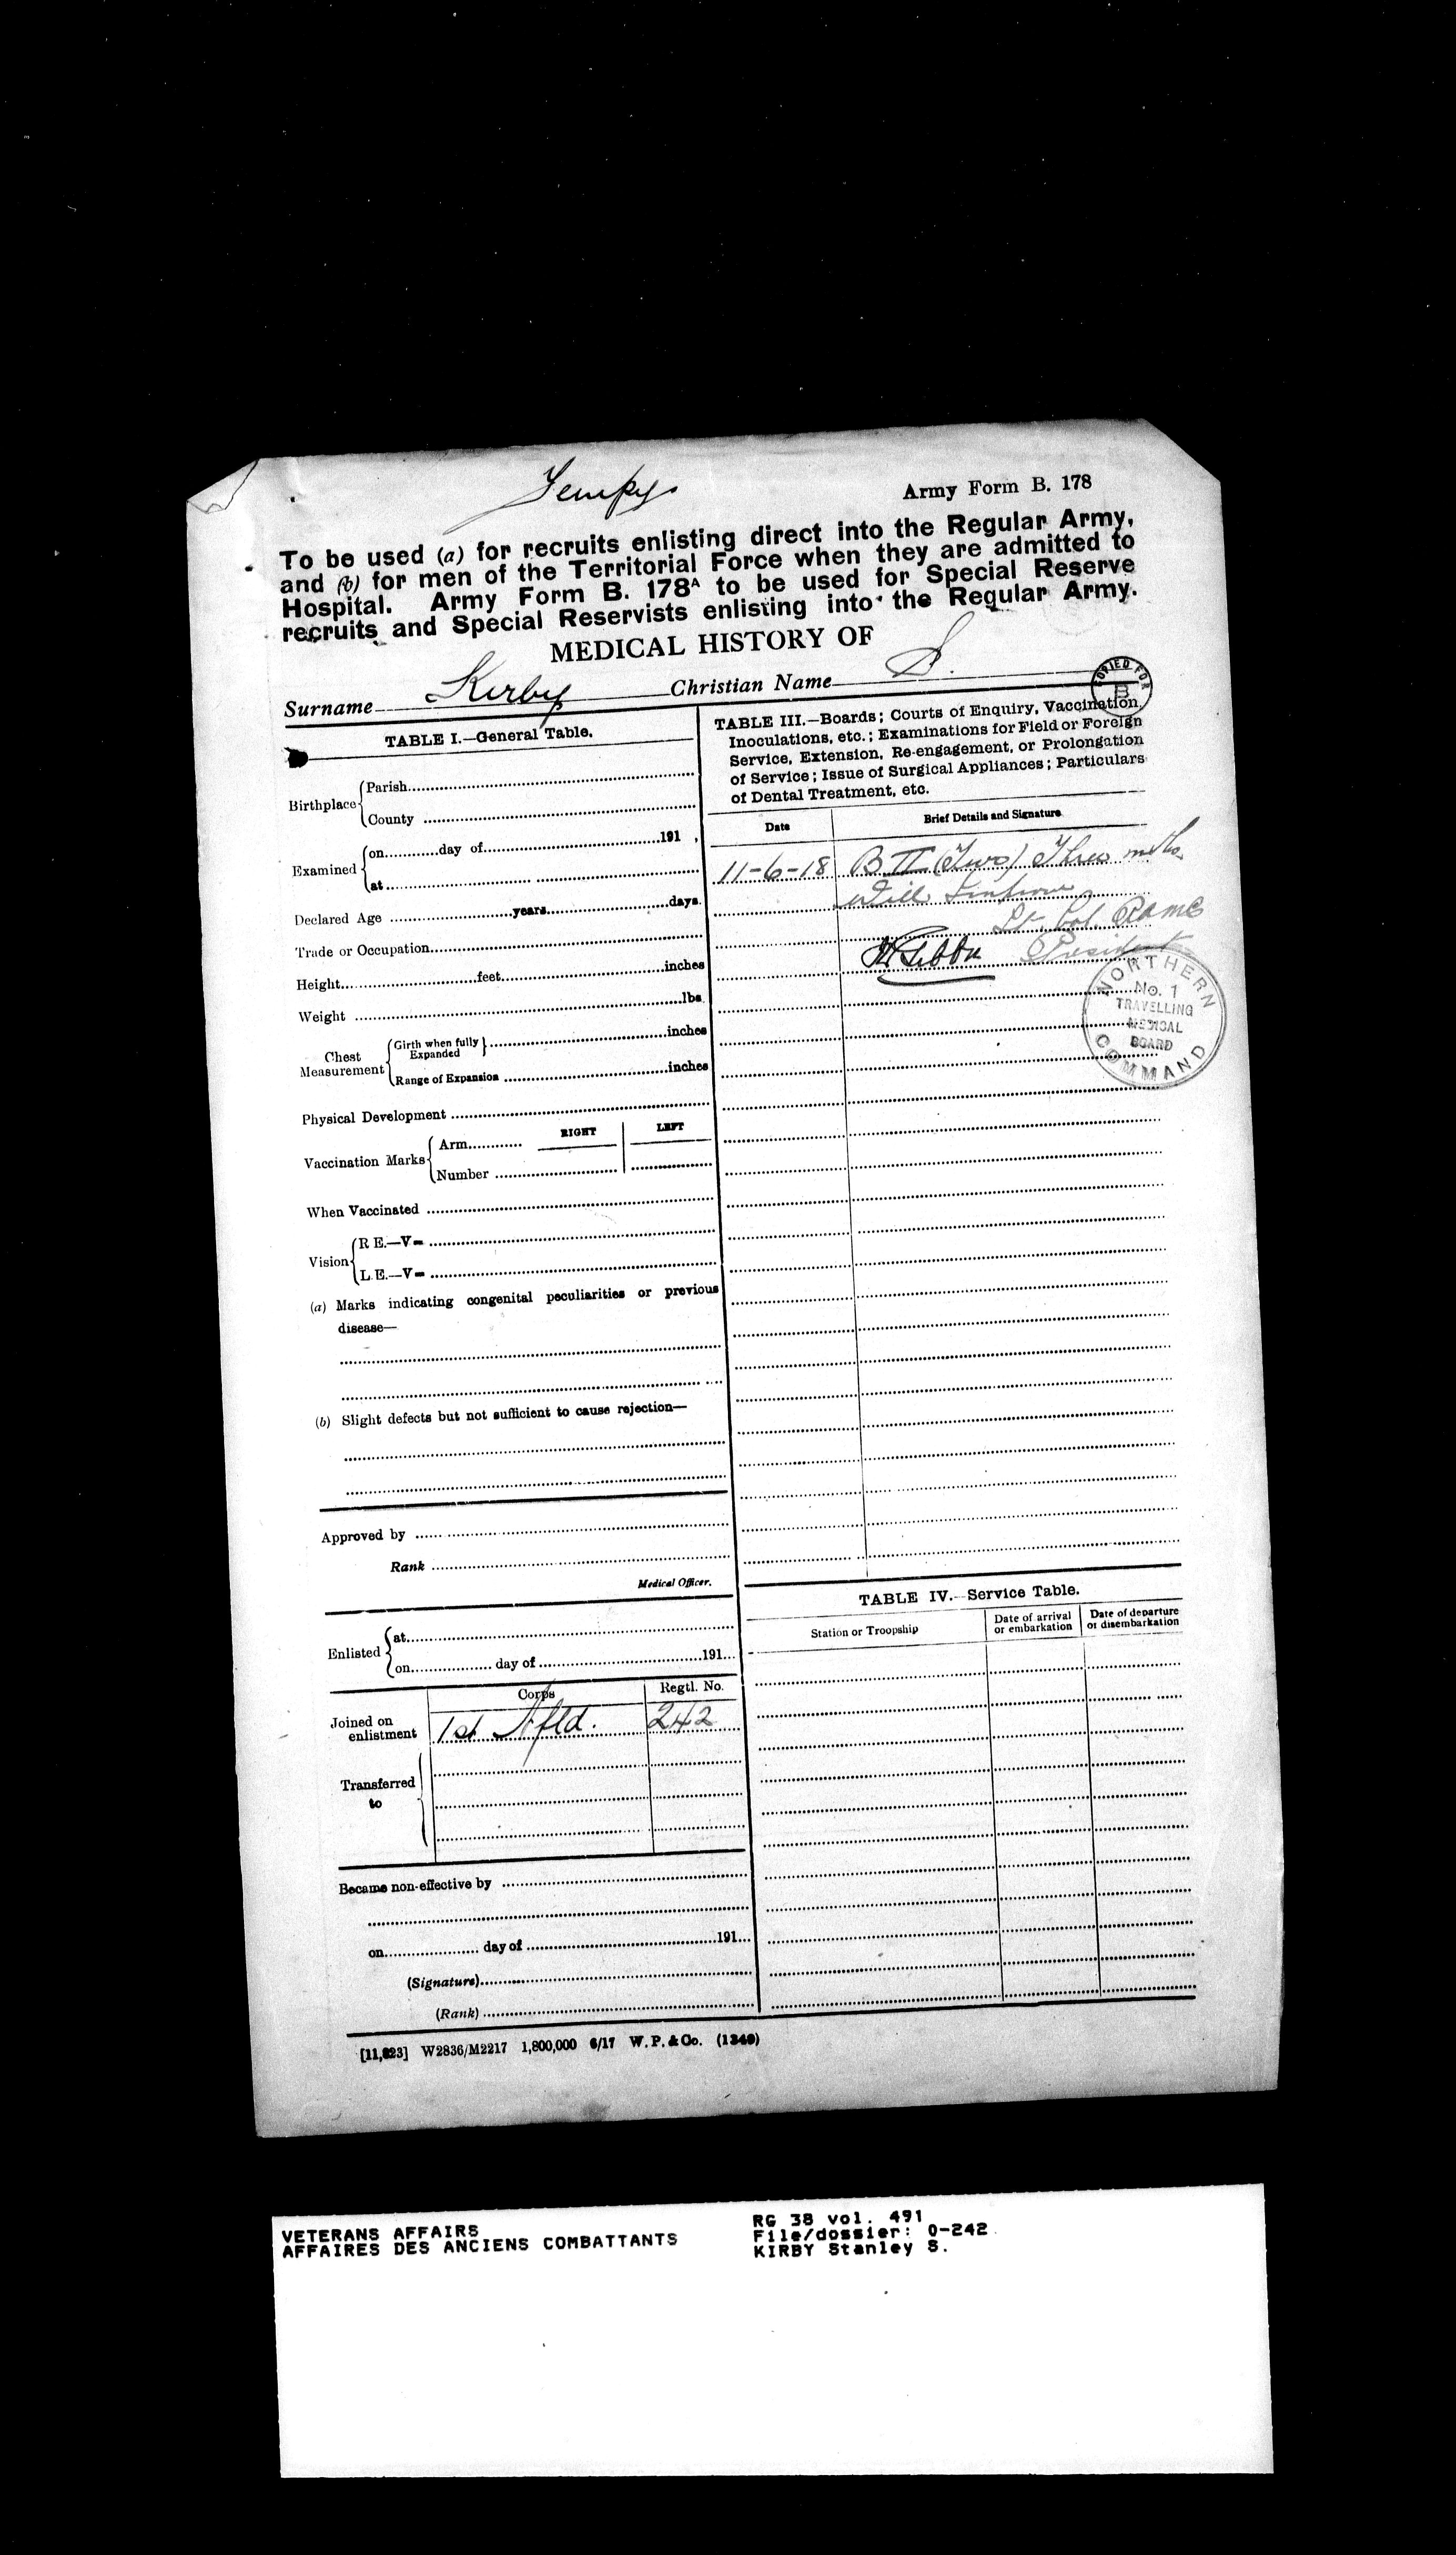 Tempy
Army Form B. 178
To be used (a) for recruits enlisting direct into the Regular Army,
and (b) for men of the Territorial Force when they are admitted to
Hospital. Army Form B. 178A to be used for Special Reserve
recruits and Special Reservists enlisting into the Regular Army.
MEDICAL HISTORY OF
Surname Kirby Christian Name S.
TABLE I.—General Table.
Birthplace
Parish
County
Examined
on day of 191
at
Declared Age years days
Trade or Occupation
Height feet inches
Weight lbs.
Chest Measurement
Girth when fully Expanded inches
Range of Expansion inches
Physical Development
Vaccination Marks
Arm RIGHT LEFT
Number
When Vaccinated
Vision
R E.—V=
L.E.—V=
(a) Marks indicating congenital peculiarities or previous
disease—
(b) Slight defects but not sufficient to cause rejection—
Approved by
Rank
Medical Officer.
Enlisted
at
on day of 191
Corps Regtl. No.
Joined on enlistment 1st Nfld. 242
Transferred to
Became non-effective by
on day of 191
(Signature)
(Rank)
[11,823] W2836/M2217 1,800,000 6/17 W. P. & Co. (1340)
TABLE III.—Boards; Courts of Enquiry, Vaccination,
Inoculations, etc.; Examinations for Field or Foreign
Service, Extension, Re-engagement, or Prolongation
of Service; Issue of Surgical Appliances; Particulars
of Dental Treatment, etc.
Date Brief Details and Signature
11-6-18 B II (Two) Three mths.
Will Improve
Lt. Col. RAMC
President
NORTHERN COMMAND
No. 1
TRAVELLING
MEDICAL
BOARD
TABLE IV.—Service Table.
Station or Troopship
Date of arrival or embarkation
Date of departure or disembarkation
VETERANS AFFAIRS
AFFAIRES DES ANCIENS COMBATTANTS
RG 38 vol. 491
File/dossier: 0-242
KIRBY Stanley S.